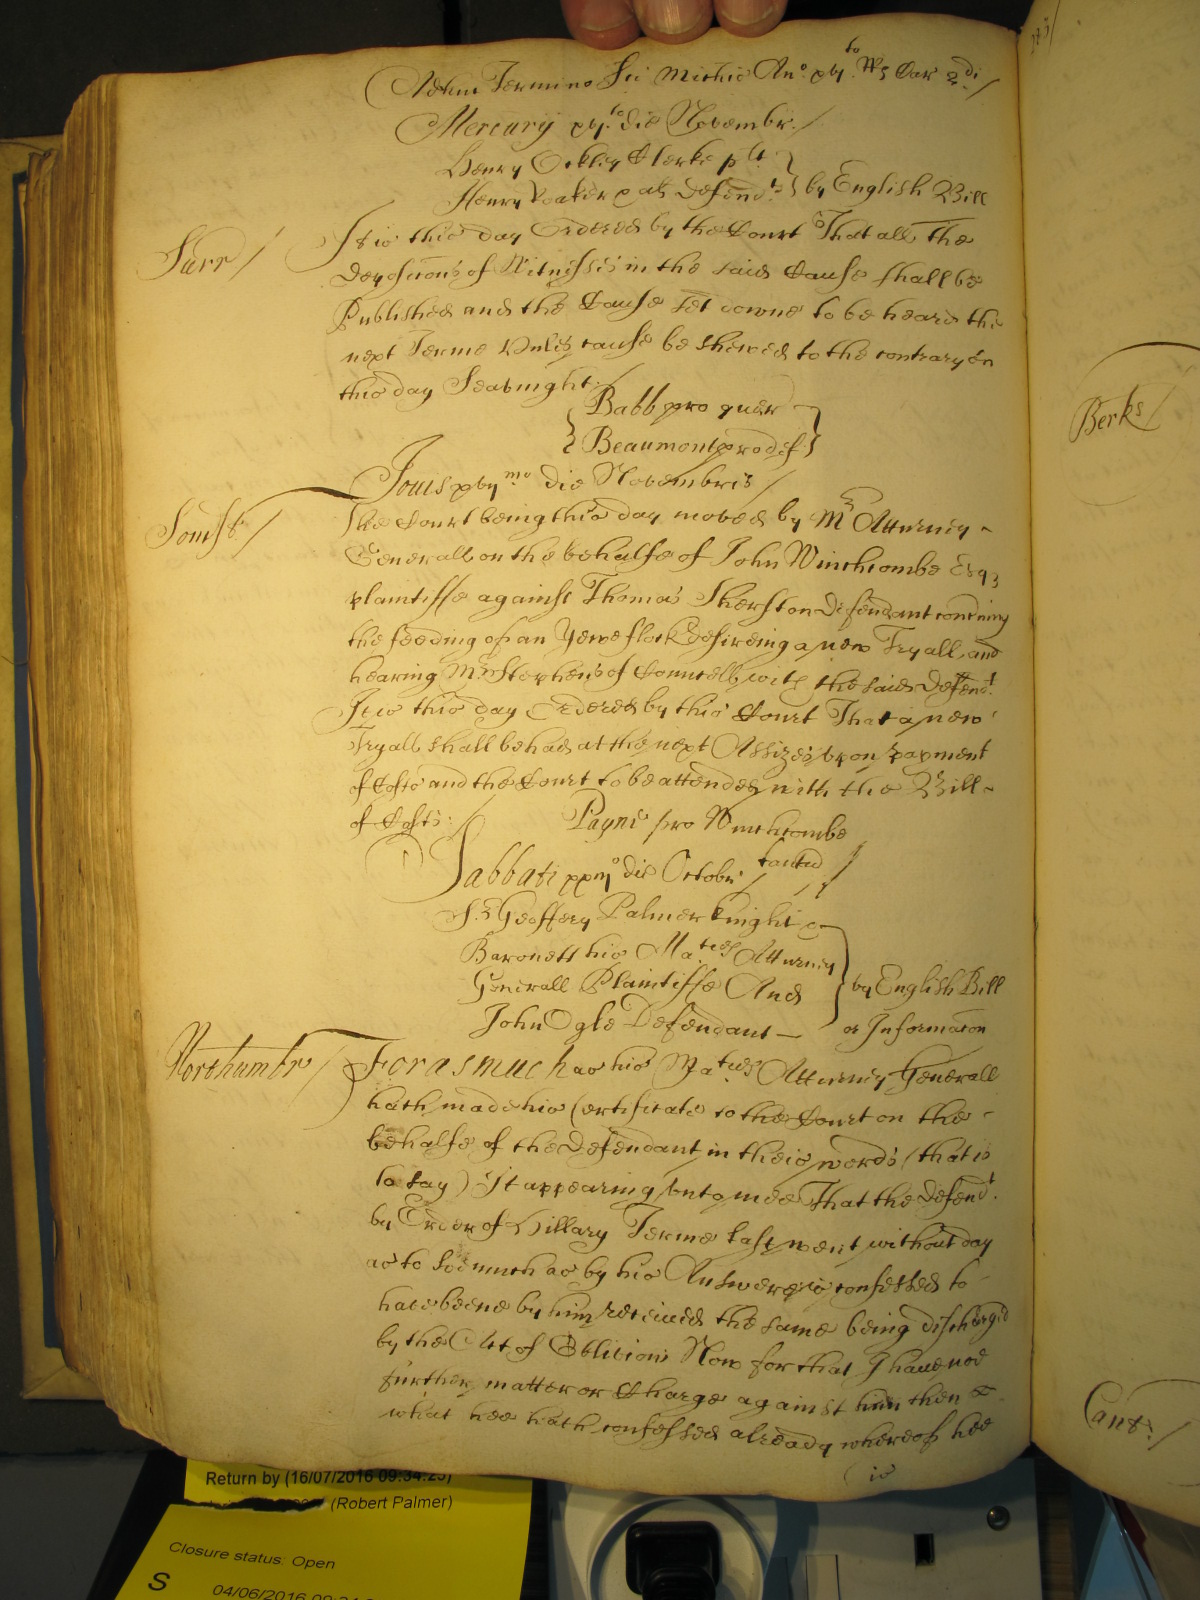 Adhuc Termino Sci Michis Ano xvj to Rs Car 2di /
Mercurij xvj to die Novembr /
Henry Ockley Clerke plt
Henry Voaker & als Defendts } by English Bill
Surr / It is this day Ordered by the Court That all the
deposicons of Witnesses in the said Cause shall be
Published and the Cause set downe to be heard the
next Terme Unles cause be shewed to the contrary on
this day Seavnight /
Babb pro quer
Beaumont pro def
Jovis xvij mo die Novembris /
Somst / The Court being this day moved by Mr Atturney
Generall on the behalfe of John Winchcombe Esq
plaintiffe against Thomas Sherston Defendant concning
the feeding of an Yewe flock desireing a new Tryall and
hearing Mr Stephens of Councell with the said Defendt.
It is this day Ordered by this Court That a new
Tryall shall be had at the next Assizes upon payment
of Costs and the Court to be attended with the Bill
of Costs: / Payne pro Winchcombe
tantu /
Sabbati die Octobr /
Sr Geoffery Palmer Knight &
Baronett his Maties Atturney
Generall Plaintiffe And } by English Bill
John Ogle Defendant or Informacon
Northumbr / Forasmuch as his Maties Atturney Generall
hath made his Certificate to the Court on the
behalfe of the Defendant in theis words (that is
to say) It appearing unto mee That the Defendt.
by Order of Hillary Terme last went without day
as to soe much as by his Answere is confessed to
have beene by him received the same being discharged
by the Act of Oblivion Now for that I have noe
further matter or Charge against him then
what hee hath confessed already whereof hee
is
285
Berks /
Cant /
Return by (16/07/2016 09:34:25)
(Robert Palmer)
Closure status: Open
S 04/06/2016